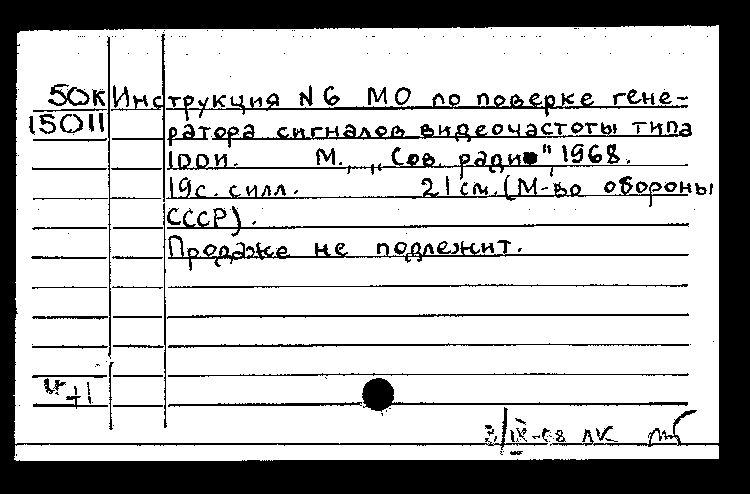 50К Инструкция № 6 МО по поверке гене-
15011 ратора сигналов видеочастоты типа
1рри. М., „Сов. радио", 1968.
19с. силл. 21 см. (М-во обороны
СССР).
Продаже не подлежит.
+1
3/IX-68 ЛК